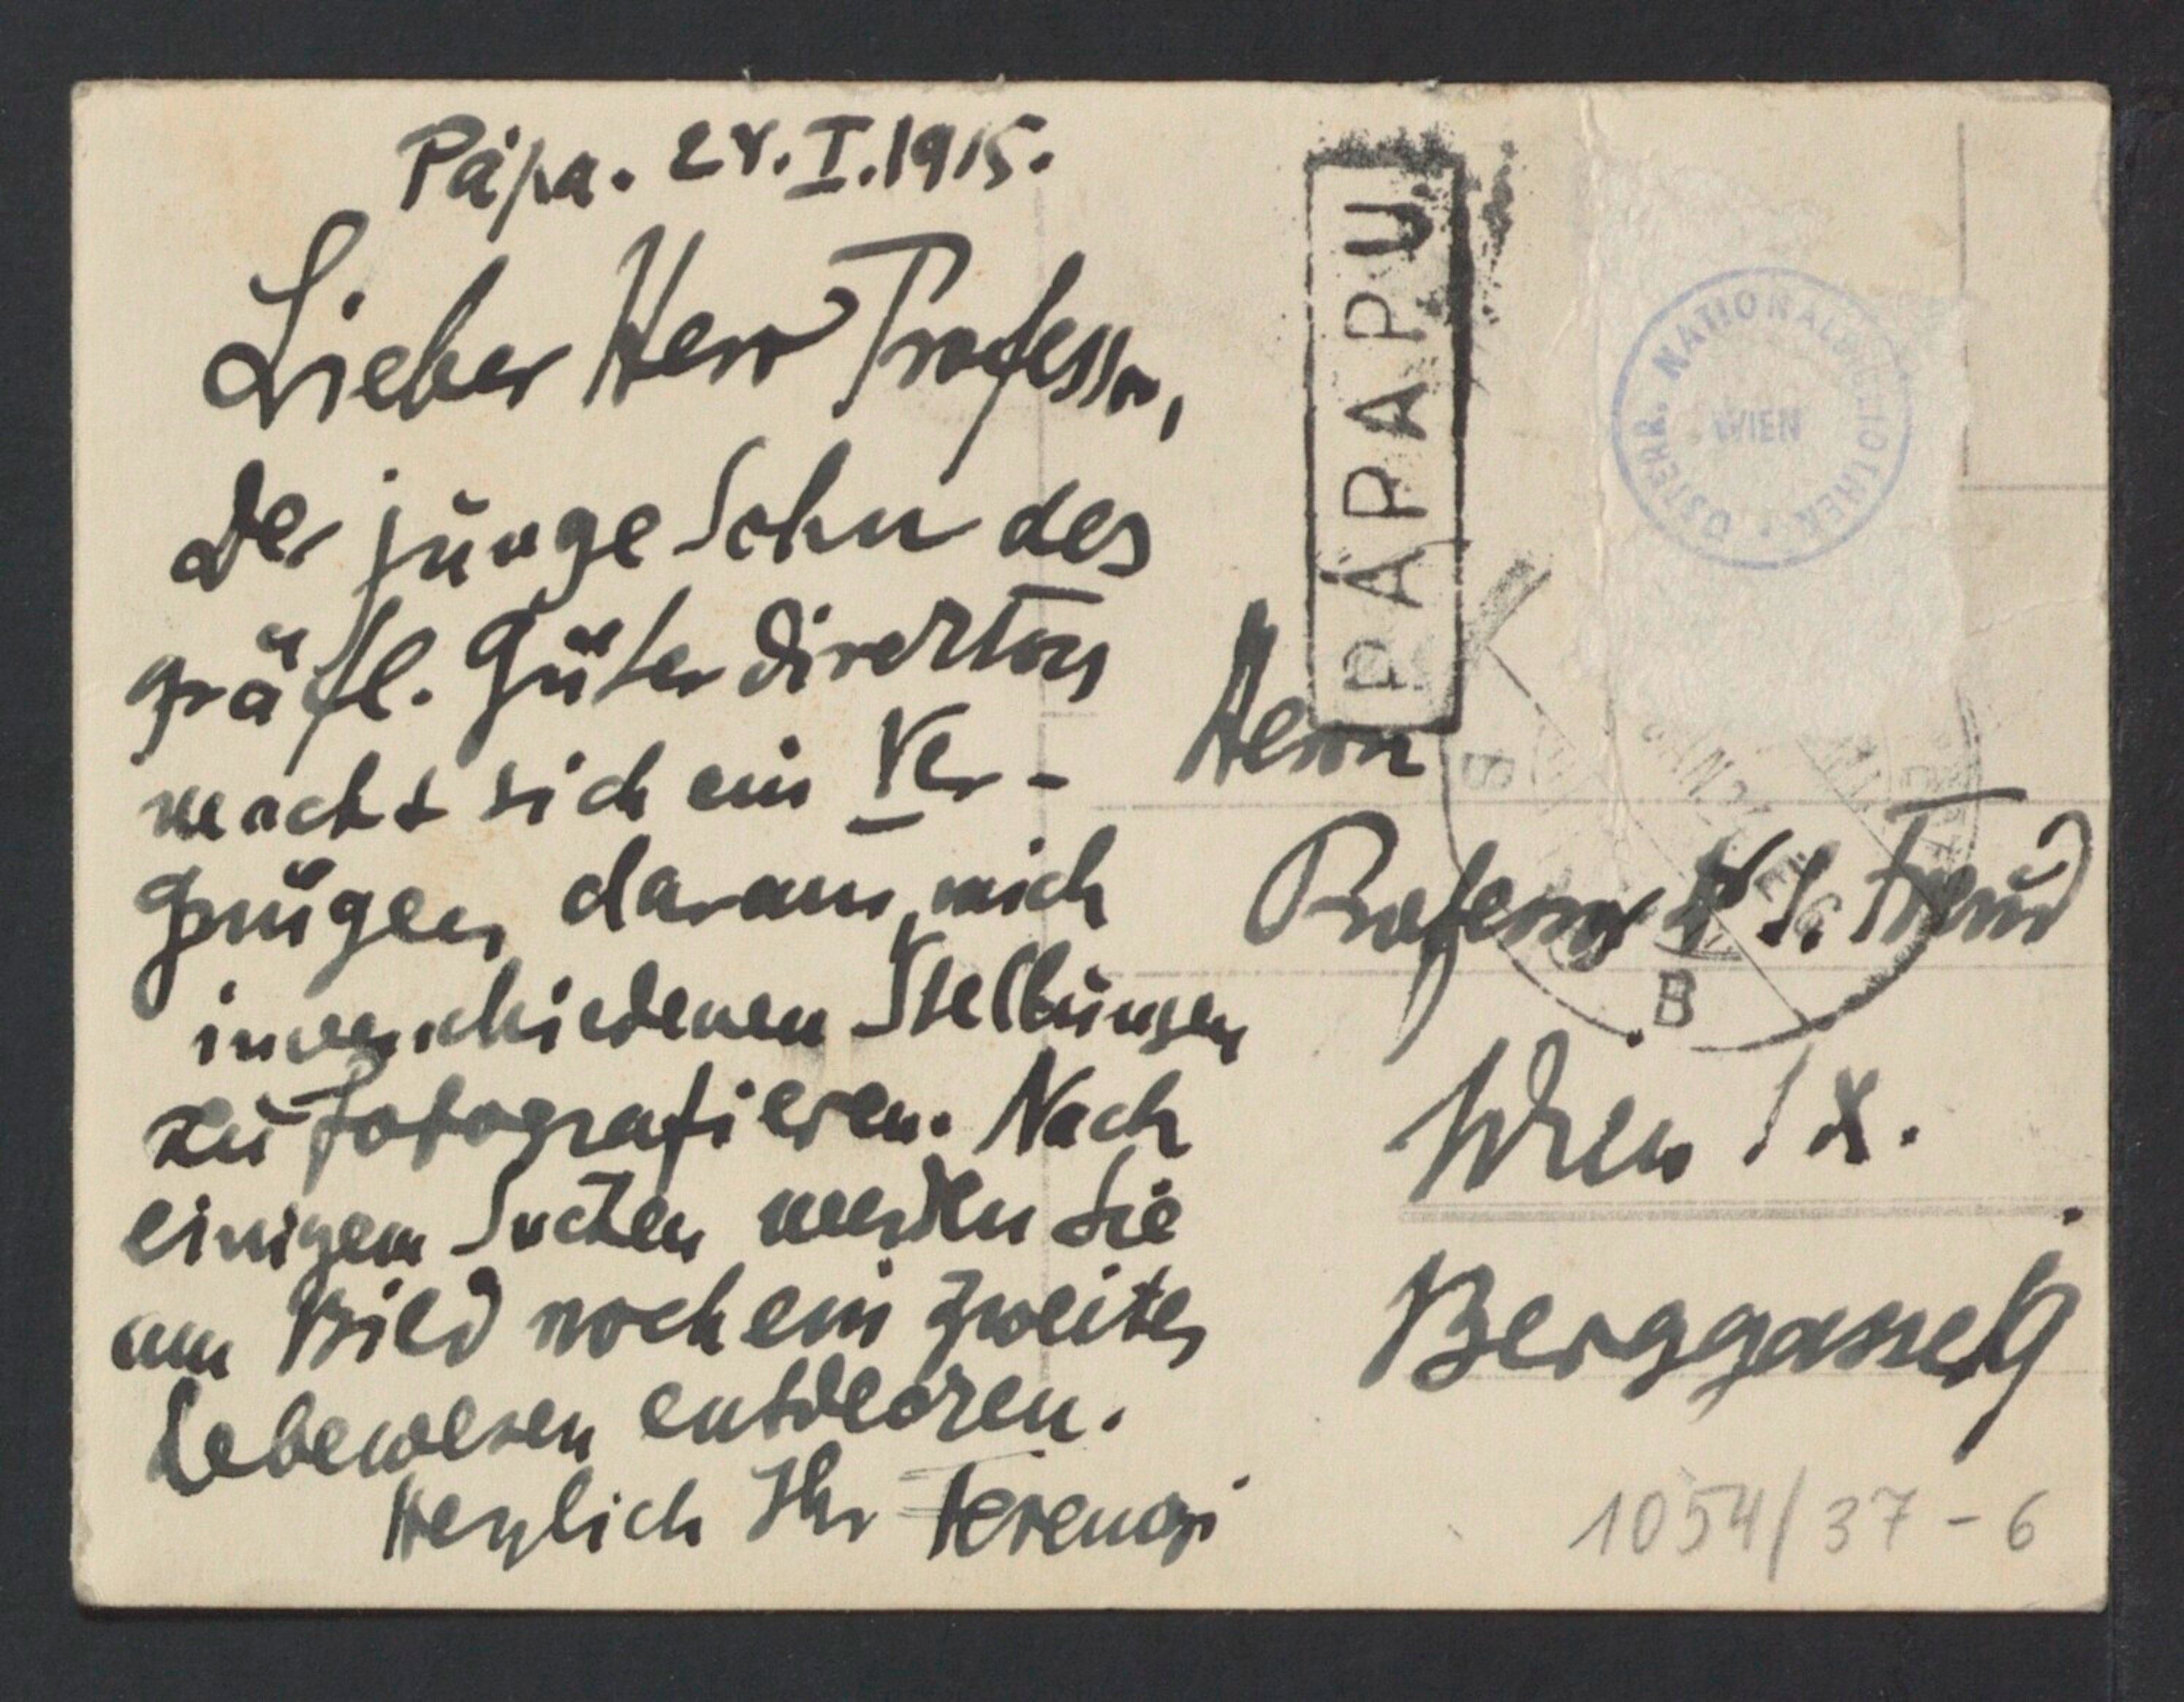 Pápa. 28.I.1915.
Lieber Herr Professor,
Der junge Sohn des
gräfl. Güterdirektors
macht sich ein Ver-
gnügen daraus, mich
in verschiedenen Stellungen
zu fotografieren. Nach
einigem Suchen werden Sie
am Bild noch ein zweites
Lebewesen entdecken.
Herzlich Ihr Ferenczi
PÁPAPU
ÖSTERR. NATIONALBIBLIOTHEK
WIEN
Herrn
Professor Dr S. Freud
B
Wien IX.
Berggasse 19
1054/37-6